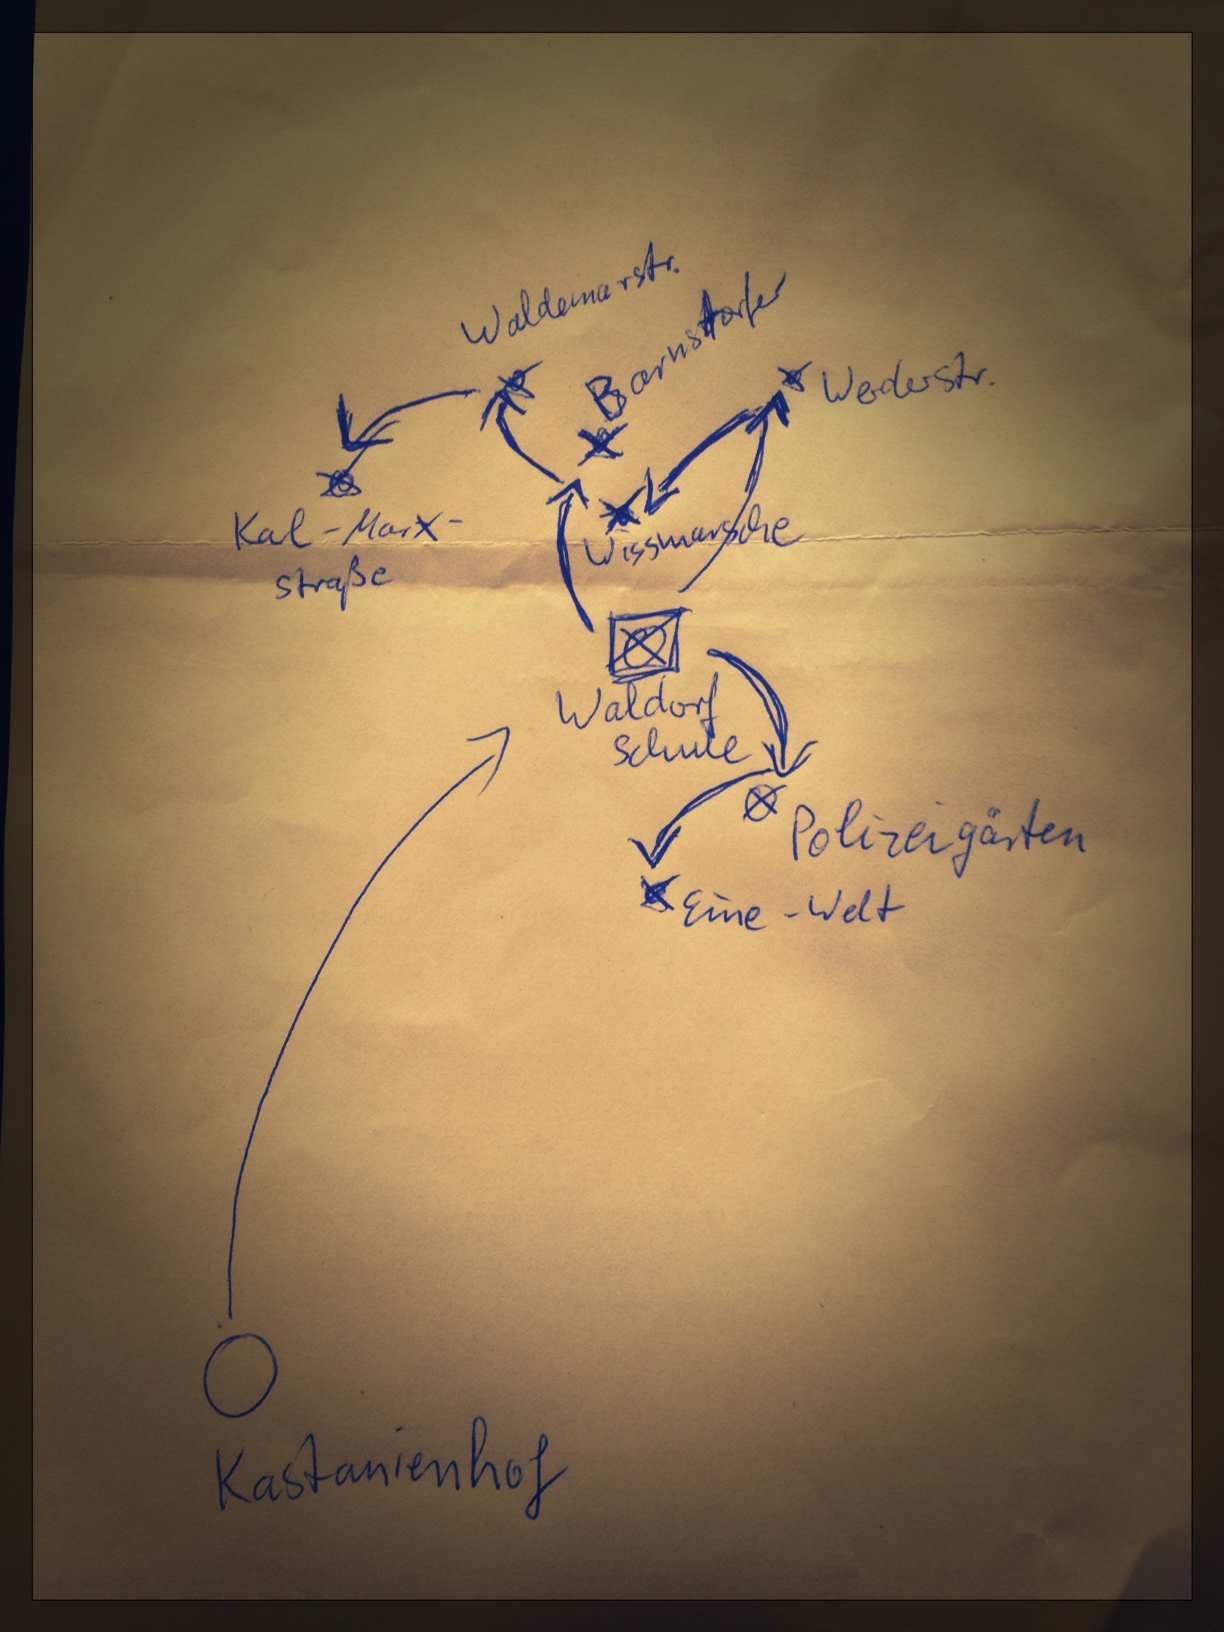 Waldemarstr.
Barnstorfer
Werderstr.
Kal-Marx-
straße
Wissmarsche
Waldorf
Schule
Polizeigärten
Eine-Welt
Kastanienhof